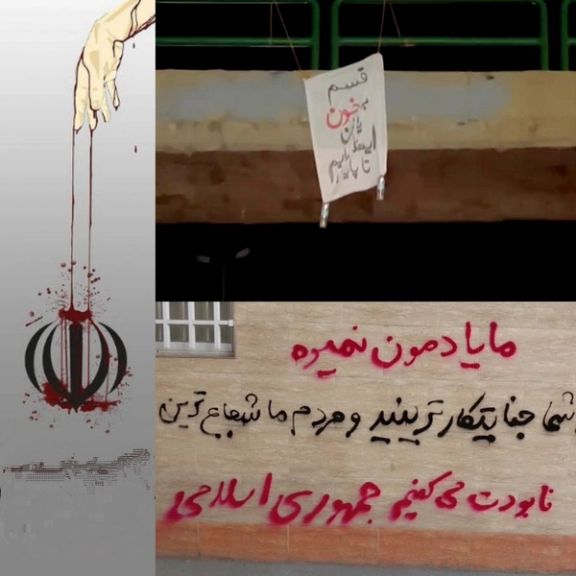 قسم
به خون
یاران
ایستاده ایم
تا پایان
ما یادمون نمیره
شما جنایتکارترینید و مردم ما شجاع ترین
نابودت می کنیم جمهوری اسلامی